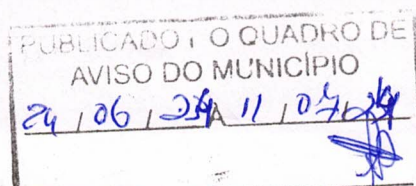 PUBLICADO O QUADRO DE
AVISO DO MUNICÍPIO
24 / 06 / 24 A 11 / 07 / 24